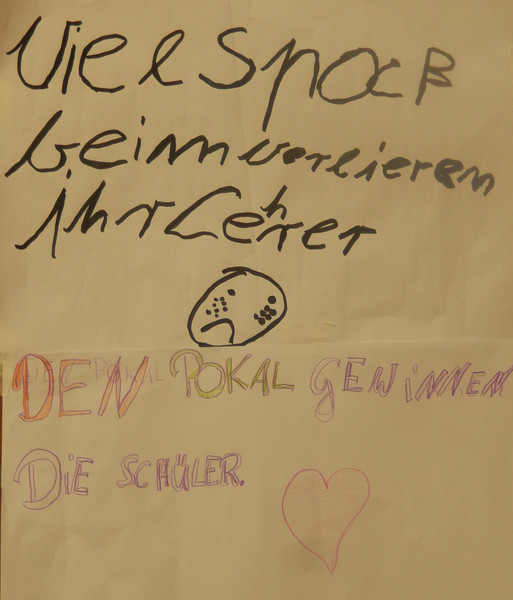 Viel Spaß
beim verlieren
Ihr Lehrer
DEN POKAL GEWINNEN
DIE SCHÜLER.